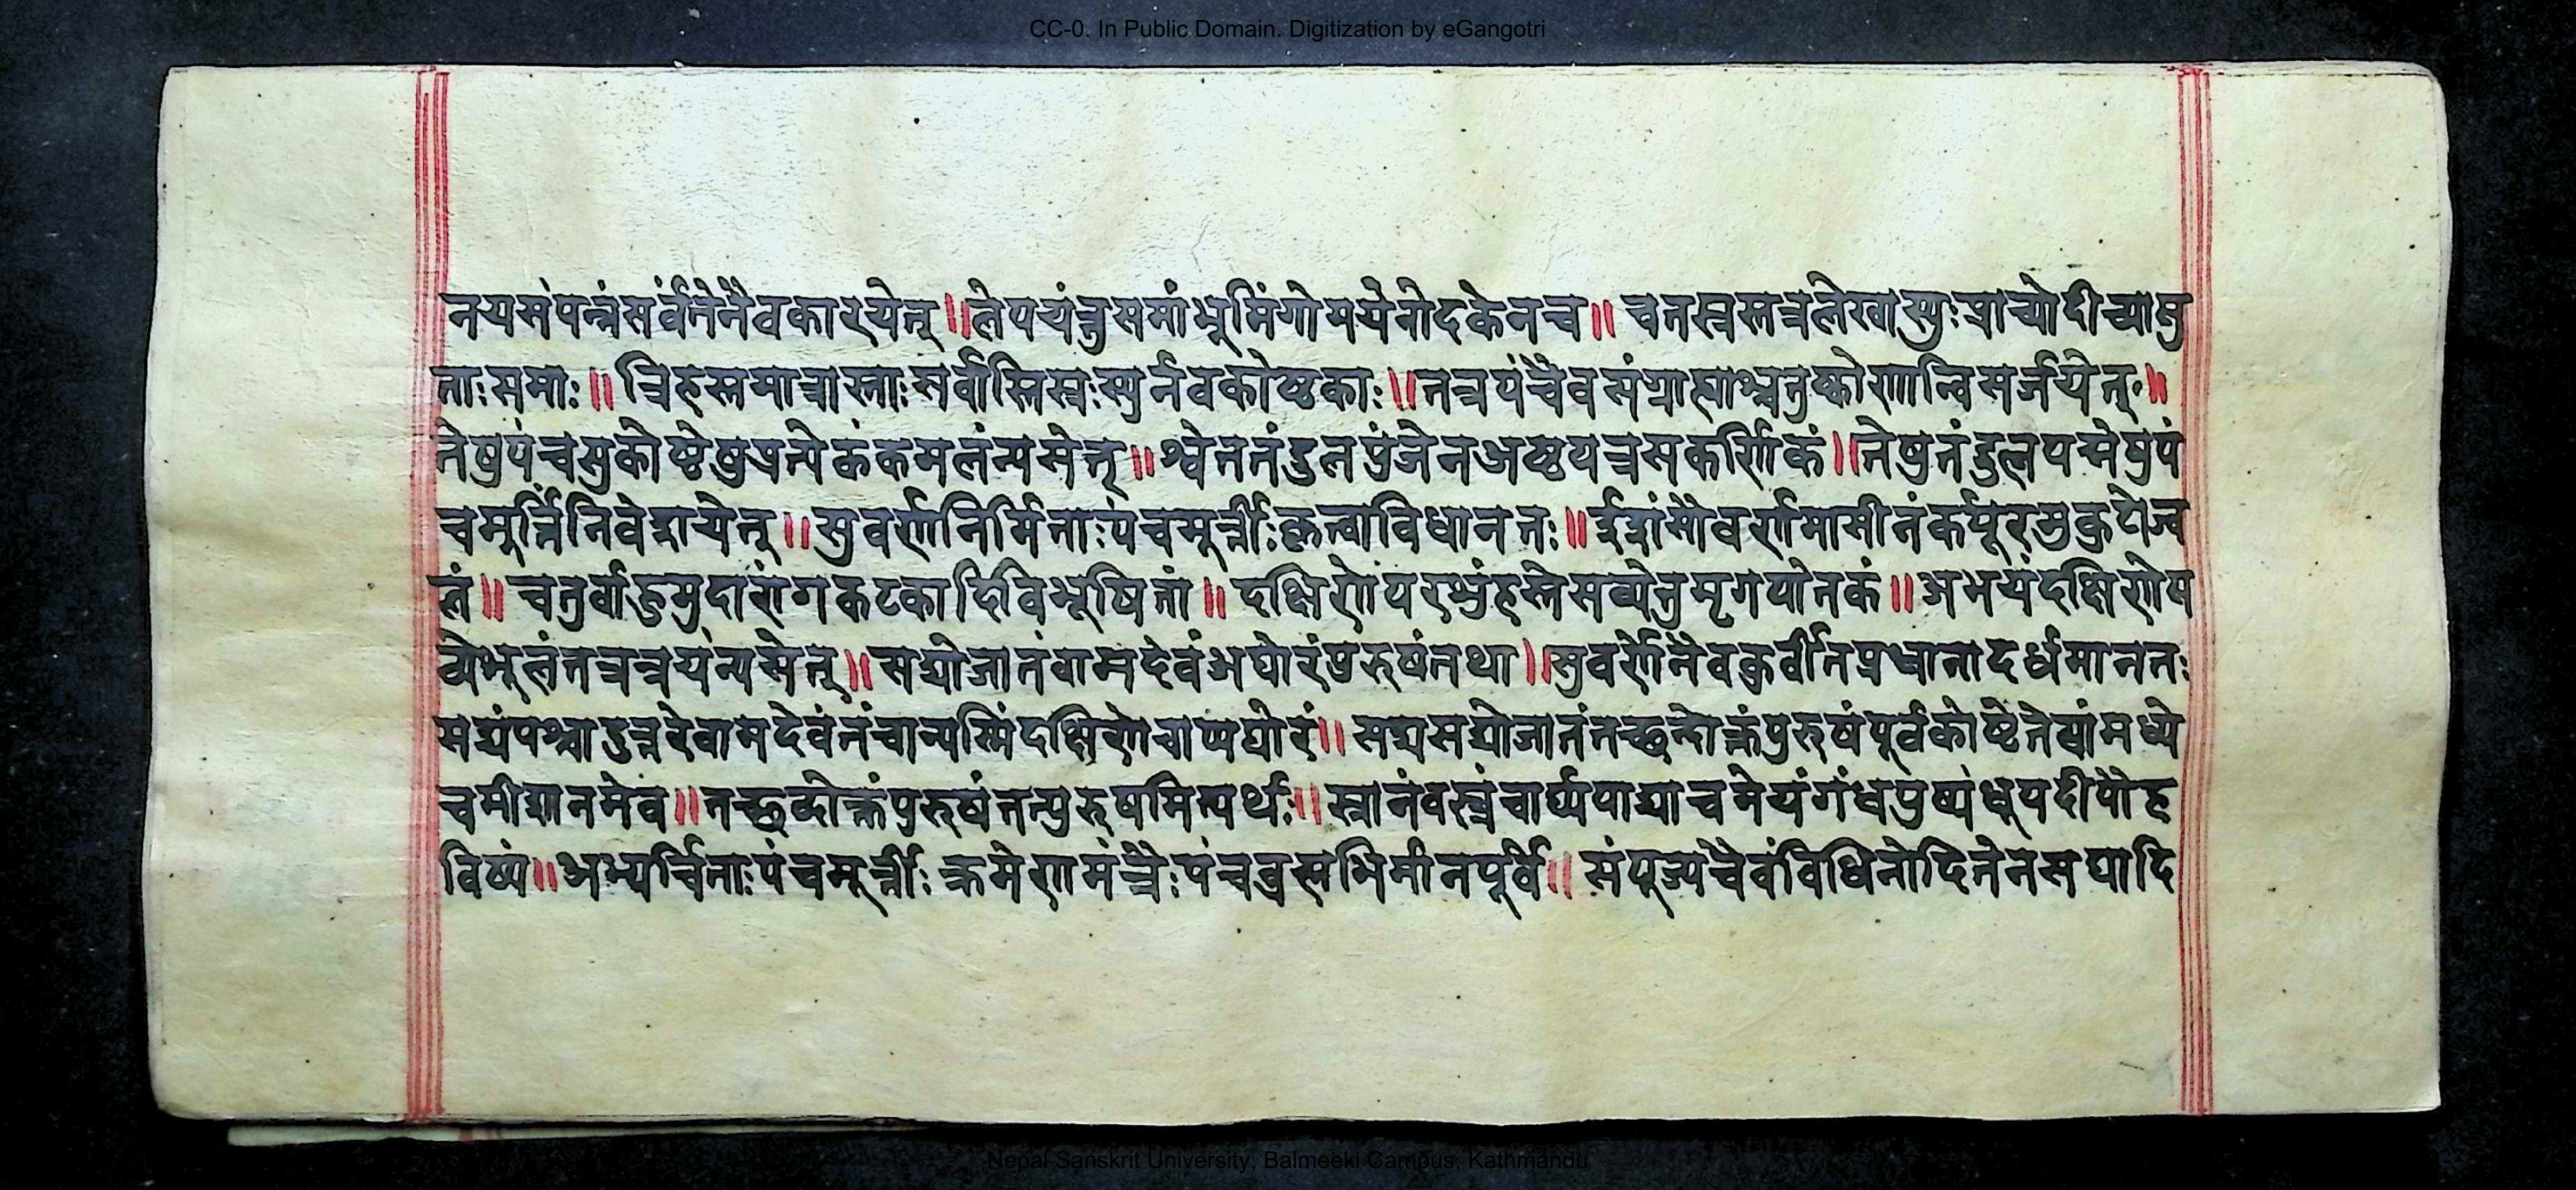 CC-0. In Public Domain. Digitization by eGangotri
नयसंपन्नंसर्वंतेनैवकारयेत् ॥ लेपयंत्तुसमांभूमिंगोमयेनोदकेनच ॥ चतस्रस्तत्रलेखास्युःप्राच्योदीच्यासु
ताःसमाः ॥ त्रिहस्तमात्रास्ताःसर्वास्तिस्रःस्युर्नवकोष्टकाः ॥ तत्रपंचैवसंग्राह्याश्चतुष्कोणान्विसर्जयेत् ॥
तेषुपंचसुकोष्टेषुप्रत्येकंकमलंन्यसेत् ॥ श्वेततंडुलपुंजेनअष्टपत्रसकर्णिकं ॥ तेषुतंडुलपद्मेषुपं
चमूर्त्तिंनिवेशयेत् ॥ सुवर्णनिर्मिताःपंचमूर्त्तीःकृत्वाविधानतः ॥ ईशांसौवर्णमासीनंकर्पूरमुकुटोज्व
लं ॥ चतुर्बाहुमुदारांगकटकादिविभूषितां ॥ दक्षिणेपरशुंहस्तेसव्येतुमृगपोतकं ॥ अभयंदक्षिणेस
व्येशूलंतत्रत्रयंन्यसेत् ॥ सद्योजातंवामदेवंअघोरंपुरुषंतथा ॥ सुवर्णेनैवकुर्वीतप्रधानादर्धमानतः
सद्यंपश्चादुत्तरेवामदेवंतंचान्यस्मिंदक्षिणेचाप्यघोरं ॥ सद्यसद्योजातंतच्छब्दोक्तंपुरुषंपूर्वकोष्टेतेषांमध्ये
चमीशानमेव ॥ तच्छब्दोक्तंपुरुषंतत्पुरुषमित्यर्थः ॥ स्नानंवस्त्रंचार्घ्यपाद्याचमेयंगंधपुष्पंधूपदीपोह
विष्यं ॥ अभ्यर्चिताःपंचमूर्त्तीःक्रमेणमंत्रैःपंचब्रह्मभिर्मानपूर्वं ॥ संपूज्यचैवंविधिनोदितेनसद्यादि
Nepal Sanskrit University, Balmeeki Campus, Kathmandu